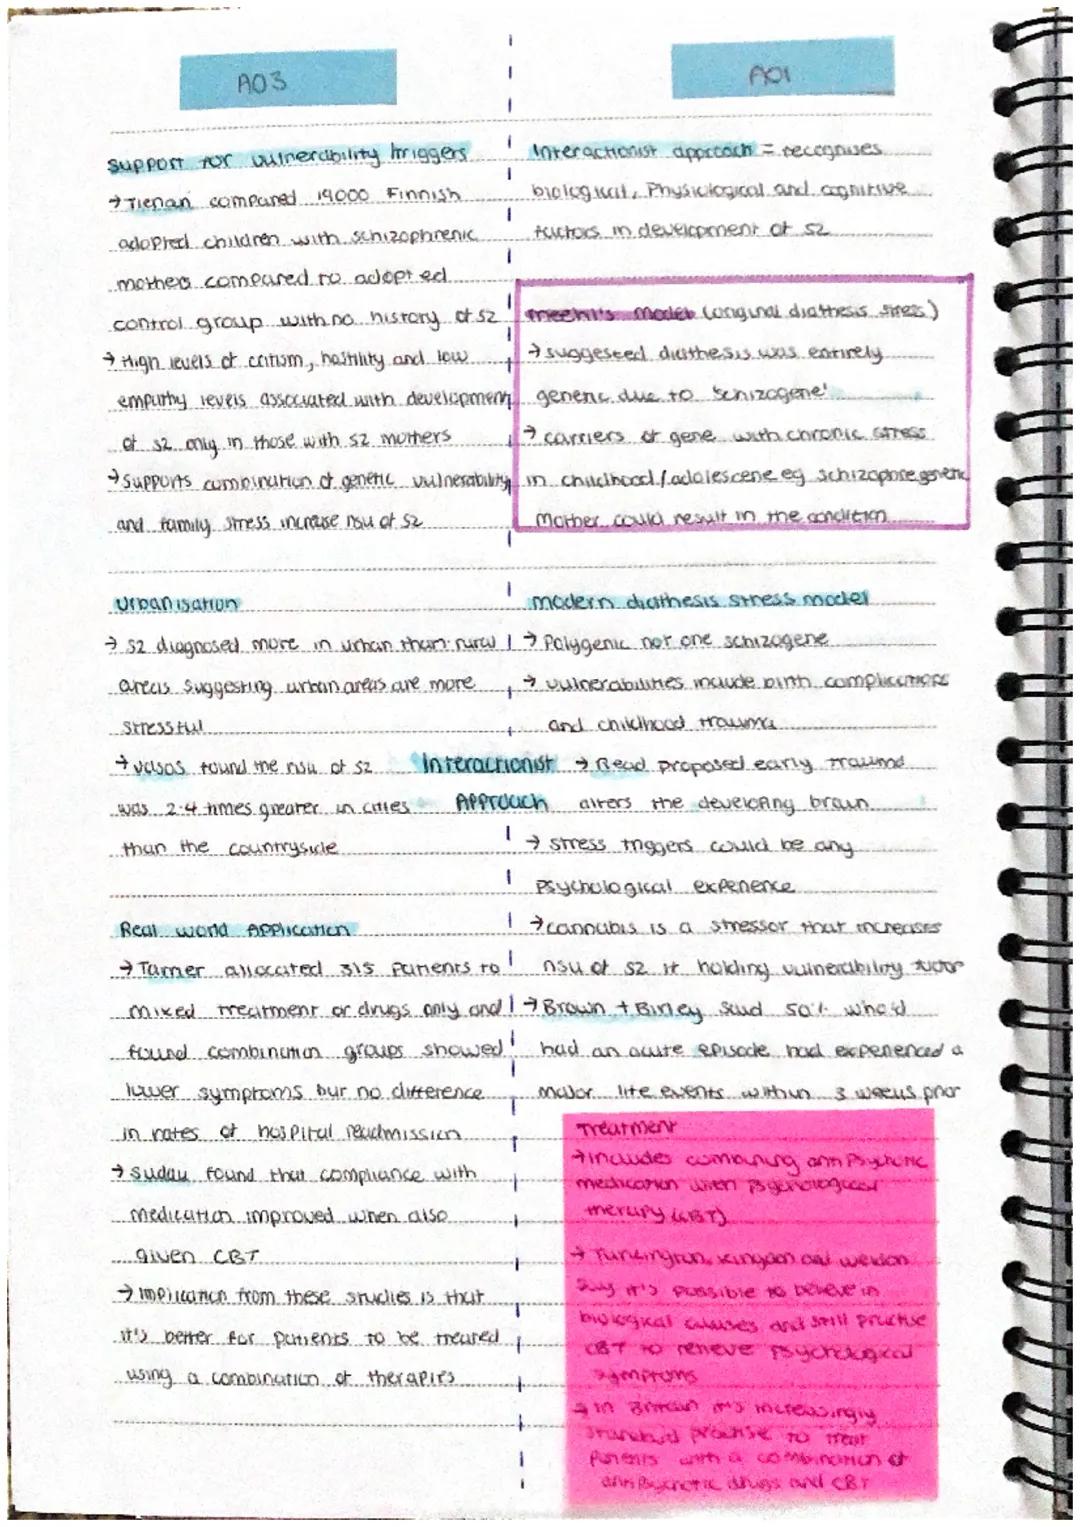 AO3
Support for vulnerability triggers
→ Tienari compared 19000 Finnish
adopted children with schizophrenic
mothers compared to adopted
control group with no history of SZ
→ High levels of critism, hostility and low
empathy levels associated with development
of SZ only in those with SZ mothers
→ Supports combination of genetic vulnerability
and family stress increase risk of SZ
Urbanisation
→ SZ diagnosed more in urban than rural
areas suggesting urban areas are more
stressful
→ Vasos found the risk of SZ
was 2.4 times greater in cities
than the countryside
Real world Application
→ Tarrier allocated 315 patients to
mixed treatment or drugs only and
found combination groups showed
lower symptoms but no difference
in rates of hospital readmission
→ Sudak found that compliance with
medication improved when also
given CBT
→ Implication from these studies is that
it's better for patients to be treated
using a combination of therapies
Interactionist
Approach
AO1
Interactionist approach = recognises
biological, Physiological and cognitive
factors in development of SZ
Meehl's model (original diathesis stress)
→ suggested diathesis was entirely
genetic due to 'schizogene'
→ carriers of gene with chronic stress
in childhood/adolescene eg schizophregenic
mother could result in the condition
modern diathesis stress model
→ Polygenic not one schizogene
→ vulnerabilities include birth complications
and childhood trauma
→ Read proposed early trauma
alters the developing brain
→ stress triggers could be any
psychological experience
→ cannabis is a stressor that increases
risk of SZ if holding vulnerability factor
→ Brown + Birley said 50% who'd
had an acute episode had experienced a
major life events within 3 weeks prior
Treatment
→ includes combining antipsychotic
medication with psychological
therapy (CBT)
→ Turkington, Kingdon and Weldon
say it's possible to believe in
biological causes and still practise
CBT to relieve psychological
symptoms
→ in Britain it's increasingly
standard practise to treat
patients with a combination of
antipsychotic drugs and CBT